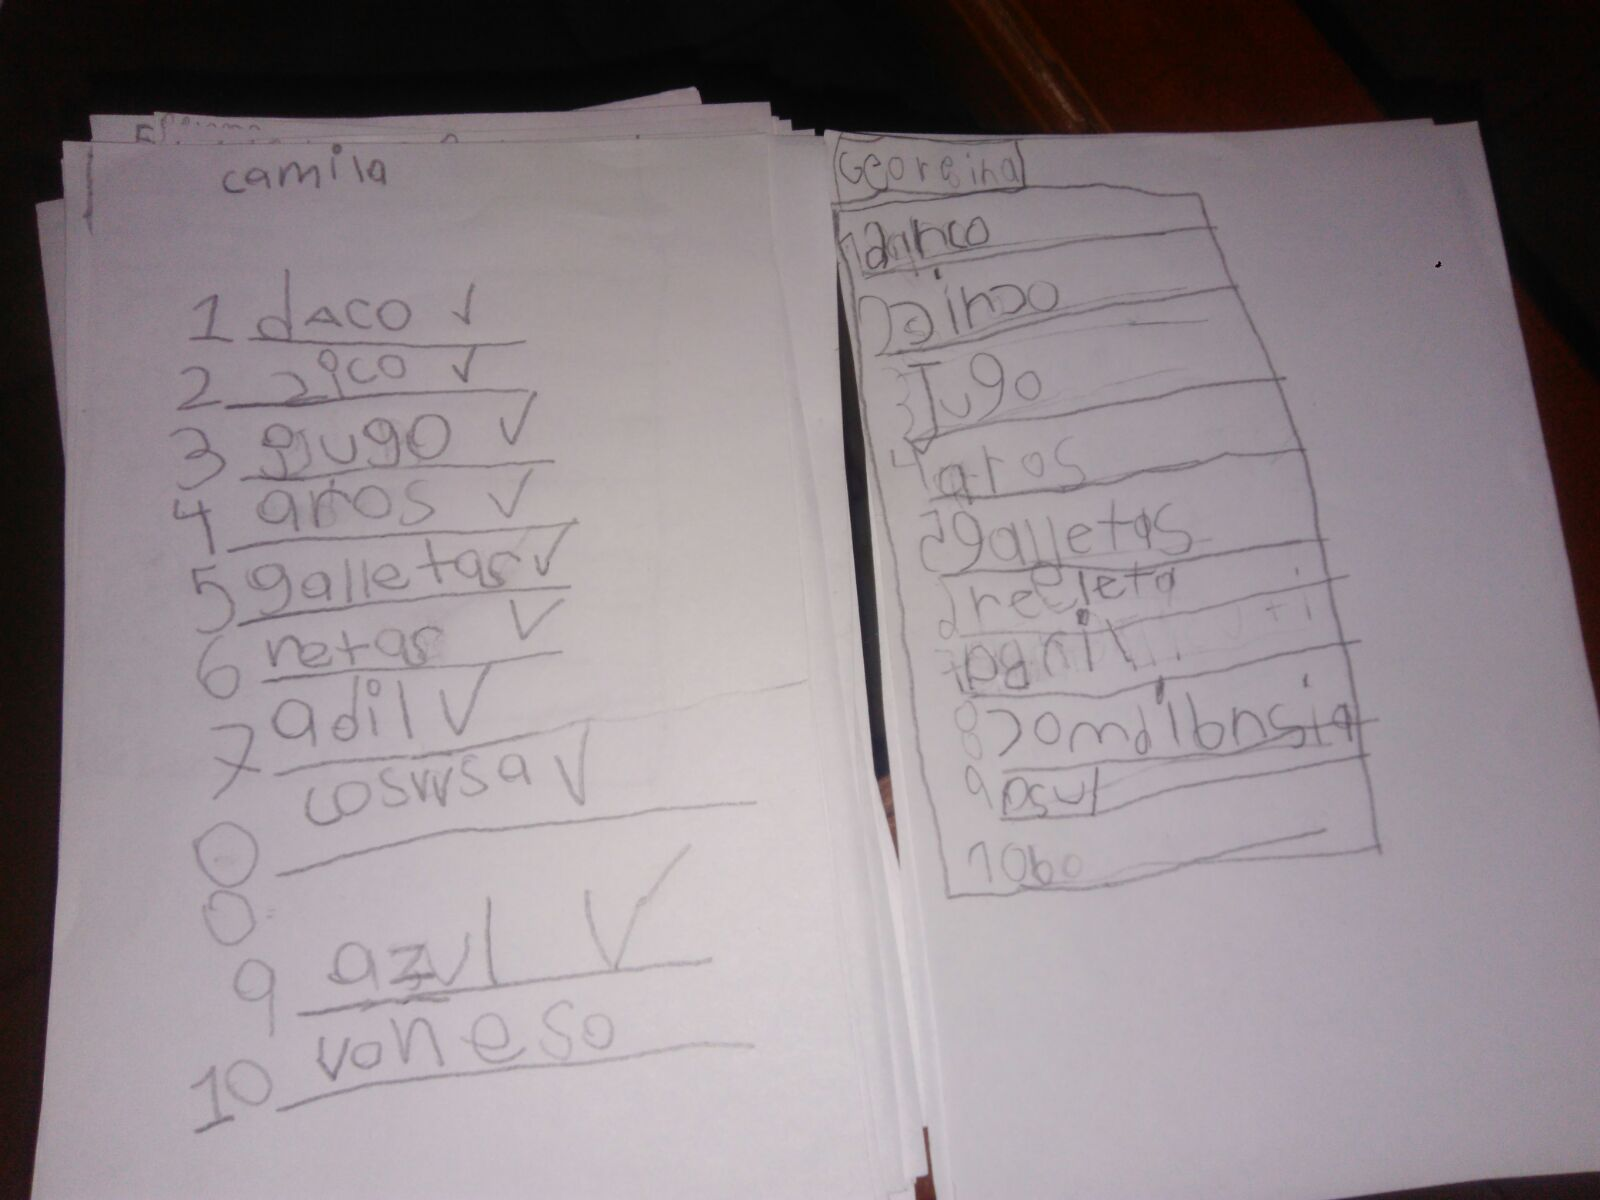 camila
1 daco ✓
2 zico ✓
3 gugo ✓
4 aros ✓
5 galletas ✓
6 retas ✓
7 adil ✓
coswsa ✓
0
0
9 azul ✓
10 voneso
Georgina
1 danco
2 sinso
3 Jugo
4 aros
5 galletas
receta
7 abril
8
9 asul
10 bo